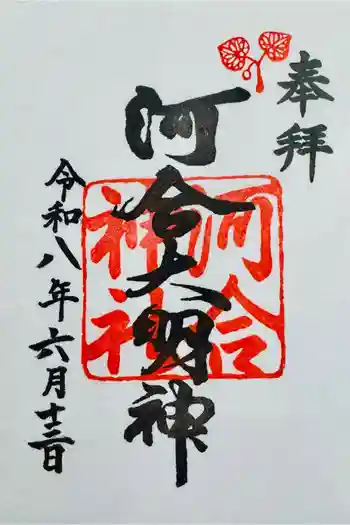 奉拝
河合大明神
河合
神社
令和八年六月十三日